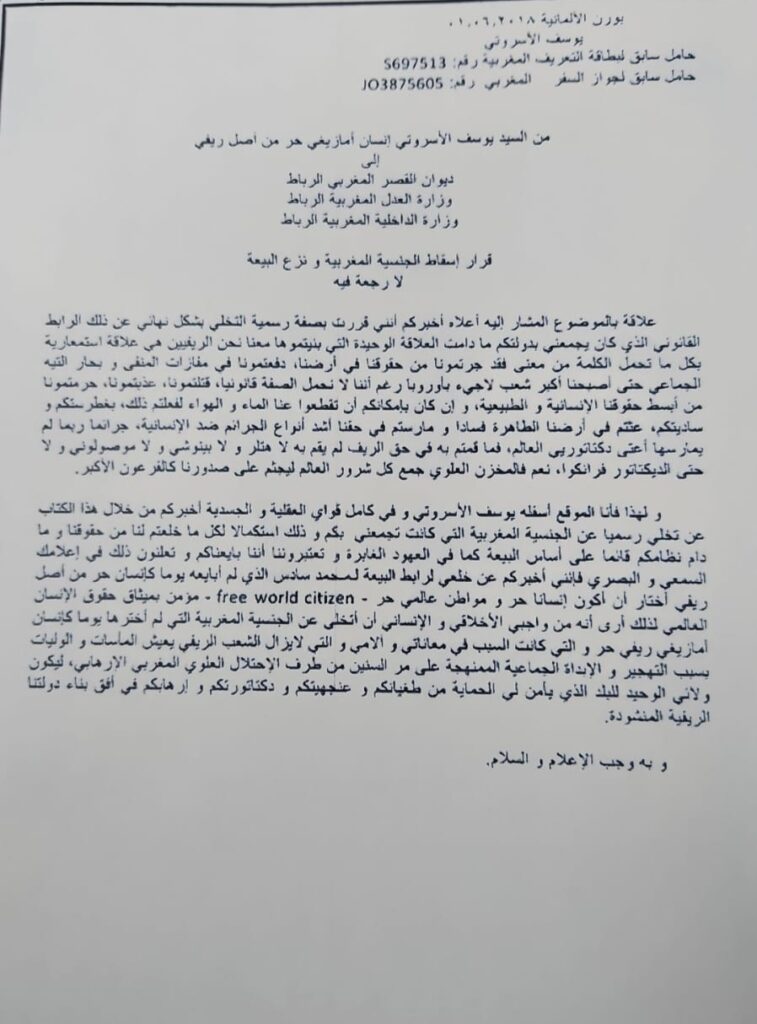 بورن الألمانية ٠١.٠٦.٢٠١٨
يوسف الأسروتي
حامل سابق لبطاقة التعريف المغربية رقم: S697513
حامل سابق لجواز السفر المغربي رقم: JO3875605
من السيد يوسف الأسروتي إنسان أمازيغي حر من أصل ريفي
إلى
ديوان القصر المغربي الرباط
وزارة العدل المغربية الرباط
وزارة الداخلية المغربية الرباط
قرار إسقاط الجنسية المغربية و نزع البيعة
لا رجعة فيه
علاقة بالموضوع المشار إليه أعلاه أخبركم أنني قررت بصفة رسمية التخلي بشكل نهائي عن ذلك الرابط
القانوني الذي كان يجمعني بدولتكم ما دامت العلاقة الوحيدة التي بنيتموها معنا نحن الريفيين هي علاقة استعمارية
بكل ما تحمل الكلمة من معنى فقد جرتمونا من حقوقنا في أرضنا، دفعتمونا في مغازات المنفى و بحار التيه
الجماعي حتى أصبحنا أكبر شعب لاجيء بأوروبا رغم أننا لا نحمل الصفة قانونيا، قتلتمونا، عذبتمونا، حرمتمونا
من أبسط حقوقنا الإنسانية و الطبيعية، و إن كان بإمكانكم أن تقطعوا عنا الماء و الهواء لفعلتم ذلك، بغطرستكم و
ساديتكم، عثتم في أرضنا الطاهرة فسادا و مارستم في حقنا أشد أنواع الجرائم ضد الإنسانية، جرائما ربما لم
يمارسها أعتى دكتاتوريي العالم، فما قمتم به في حق الريف لم يقم به لا هتلر و لا بينوشي و لا موصولوني و لا
حتى الديكتاتور فرانكوا، نعم فالمخزن العلوي جمع كل شرور العالم ليجثم على صدورنا كالفرعون الأكبر.
و لهذا فأنا الموقع أسفله يوسف الأسروتي و في كامل قواي العقلية و الجسدية أخبركم من خلال هذا الكتاب
عن تخلي رسميا عن الجنسية المغربية التي كانت تجمعني بكم و ذلك استكمالا لكل ما خلعتم لنا من حقوقنا و ما
دام نظامكم قائما على أساس البيعة كما في العهود الغابرة و تعتبروننا أننا بايعناكم و تعلنون ذلك في إعلامك
السمعي و البصري فإنني أخبركم عن خلعي لرابط البيعة لمحمد سادس الذي لم أبايعه يوما كإنسان حر من أصل
ريفي أختار أن أكون إنسانا حر و مواطن عالمي حر - free world citizen - مؤمن بميثاق حقوق الإنسان
العالمي لذلك أرى أنه من واجبي الأخلاقي و الإنساني أن أتخلى عن الجنسية المغربية التي لم أخترها يوما كإنسان
أمازيغي ريفي حر و التي كانت السبب في معاناتي و آلامي و التي لايزال الشعب الريفي يعيش المأسات و الوليات
بسبب التهجير و الإبداة الجماعية الممنهجة على مر السنين من طرف الإحتلال العلوي المغربي الإرهابي، ليكون
ولائي الوحيد للبلد الذي يأمن لي الحماية من طغيانكم و عنجهيتكم و دكتاتورتكم و إرهابكم في أفق بناء دولتنا
الريفية المنشودة.
و به وجب الإعلام و السلام.